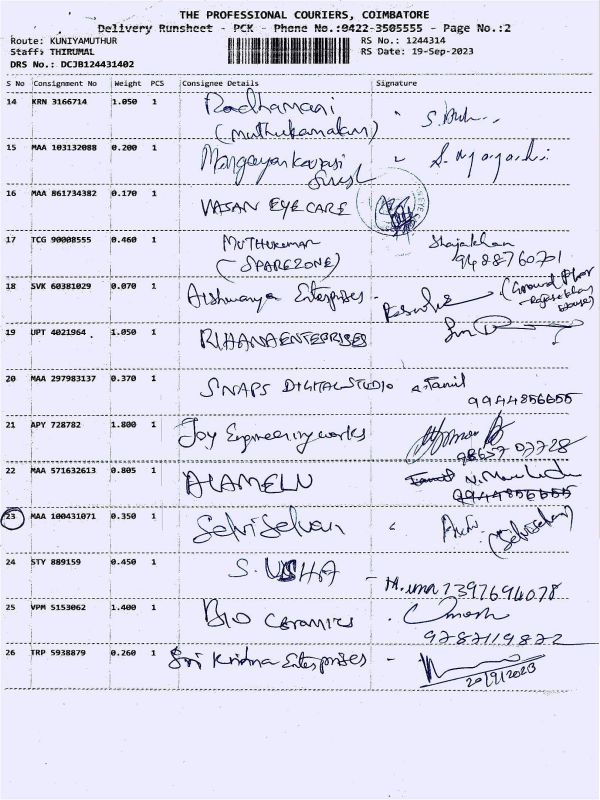 THE PROFESSIONAL COURIERS, COIMBATORE
Delivery Runsheet - PCK - Phone No.:0422-3505555 - Page No.:2
Route: KUNIYAMUTHUR RS No.: 1244314
Staff: THIRUMAL RS Date: 19-Sep-2023
DRS No.: DCJB124431402
S No Consignment No Weight PCS Consignee Details Signature
14 KRN 3166714 1.050 1 Radhamani
(Muthukamalam)
15 MAA 103132088 0.200 1 Mangayarkarasi
16 MAA 861734382 0.170 1 VASAN EYE CARE
17 TCG 90008555 0.460 1 MUTHUKUMAR Shajakhan
(SPAREZONE) 9488760701
18 SVK 60381029 0.070 1 Aishwarya Enterprises - (Ground Floor
19 UPT 4021964 1.050 1 RIHANA ENTERPRISES
20 MAA 297983137 0.370 1 SNAPS DIGITAL STUDIO Tamil
9944856655
21 APY 728782 1.800 1 Joy Engineering works
9865707728
22 MAA 571632613 0.805 1 ALAMELU
9944856655
23 MAA 100431071 0.350 1 Selvi Selvan
24 STY 889159 0.450 1 S. USHA
- M.uma 7397694078
25 VPM 5153062 1.400 1 BIO CERAMICS
9787119872
26 TRP 5938879 0.260 1 Sri Krishna Enterprises -
20/9/2023